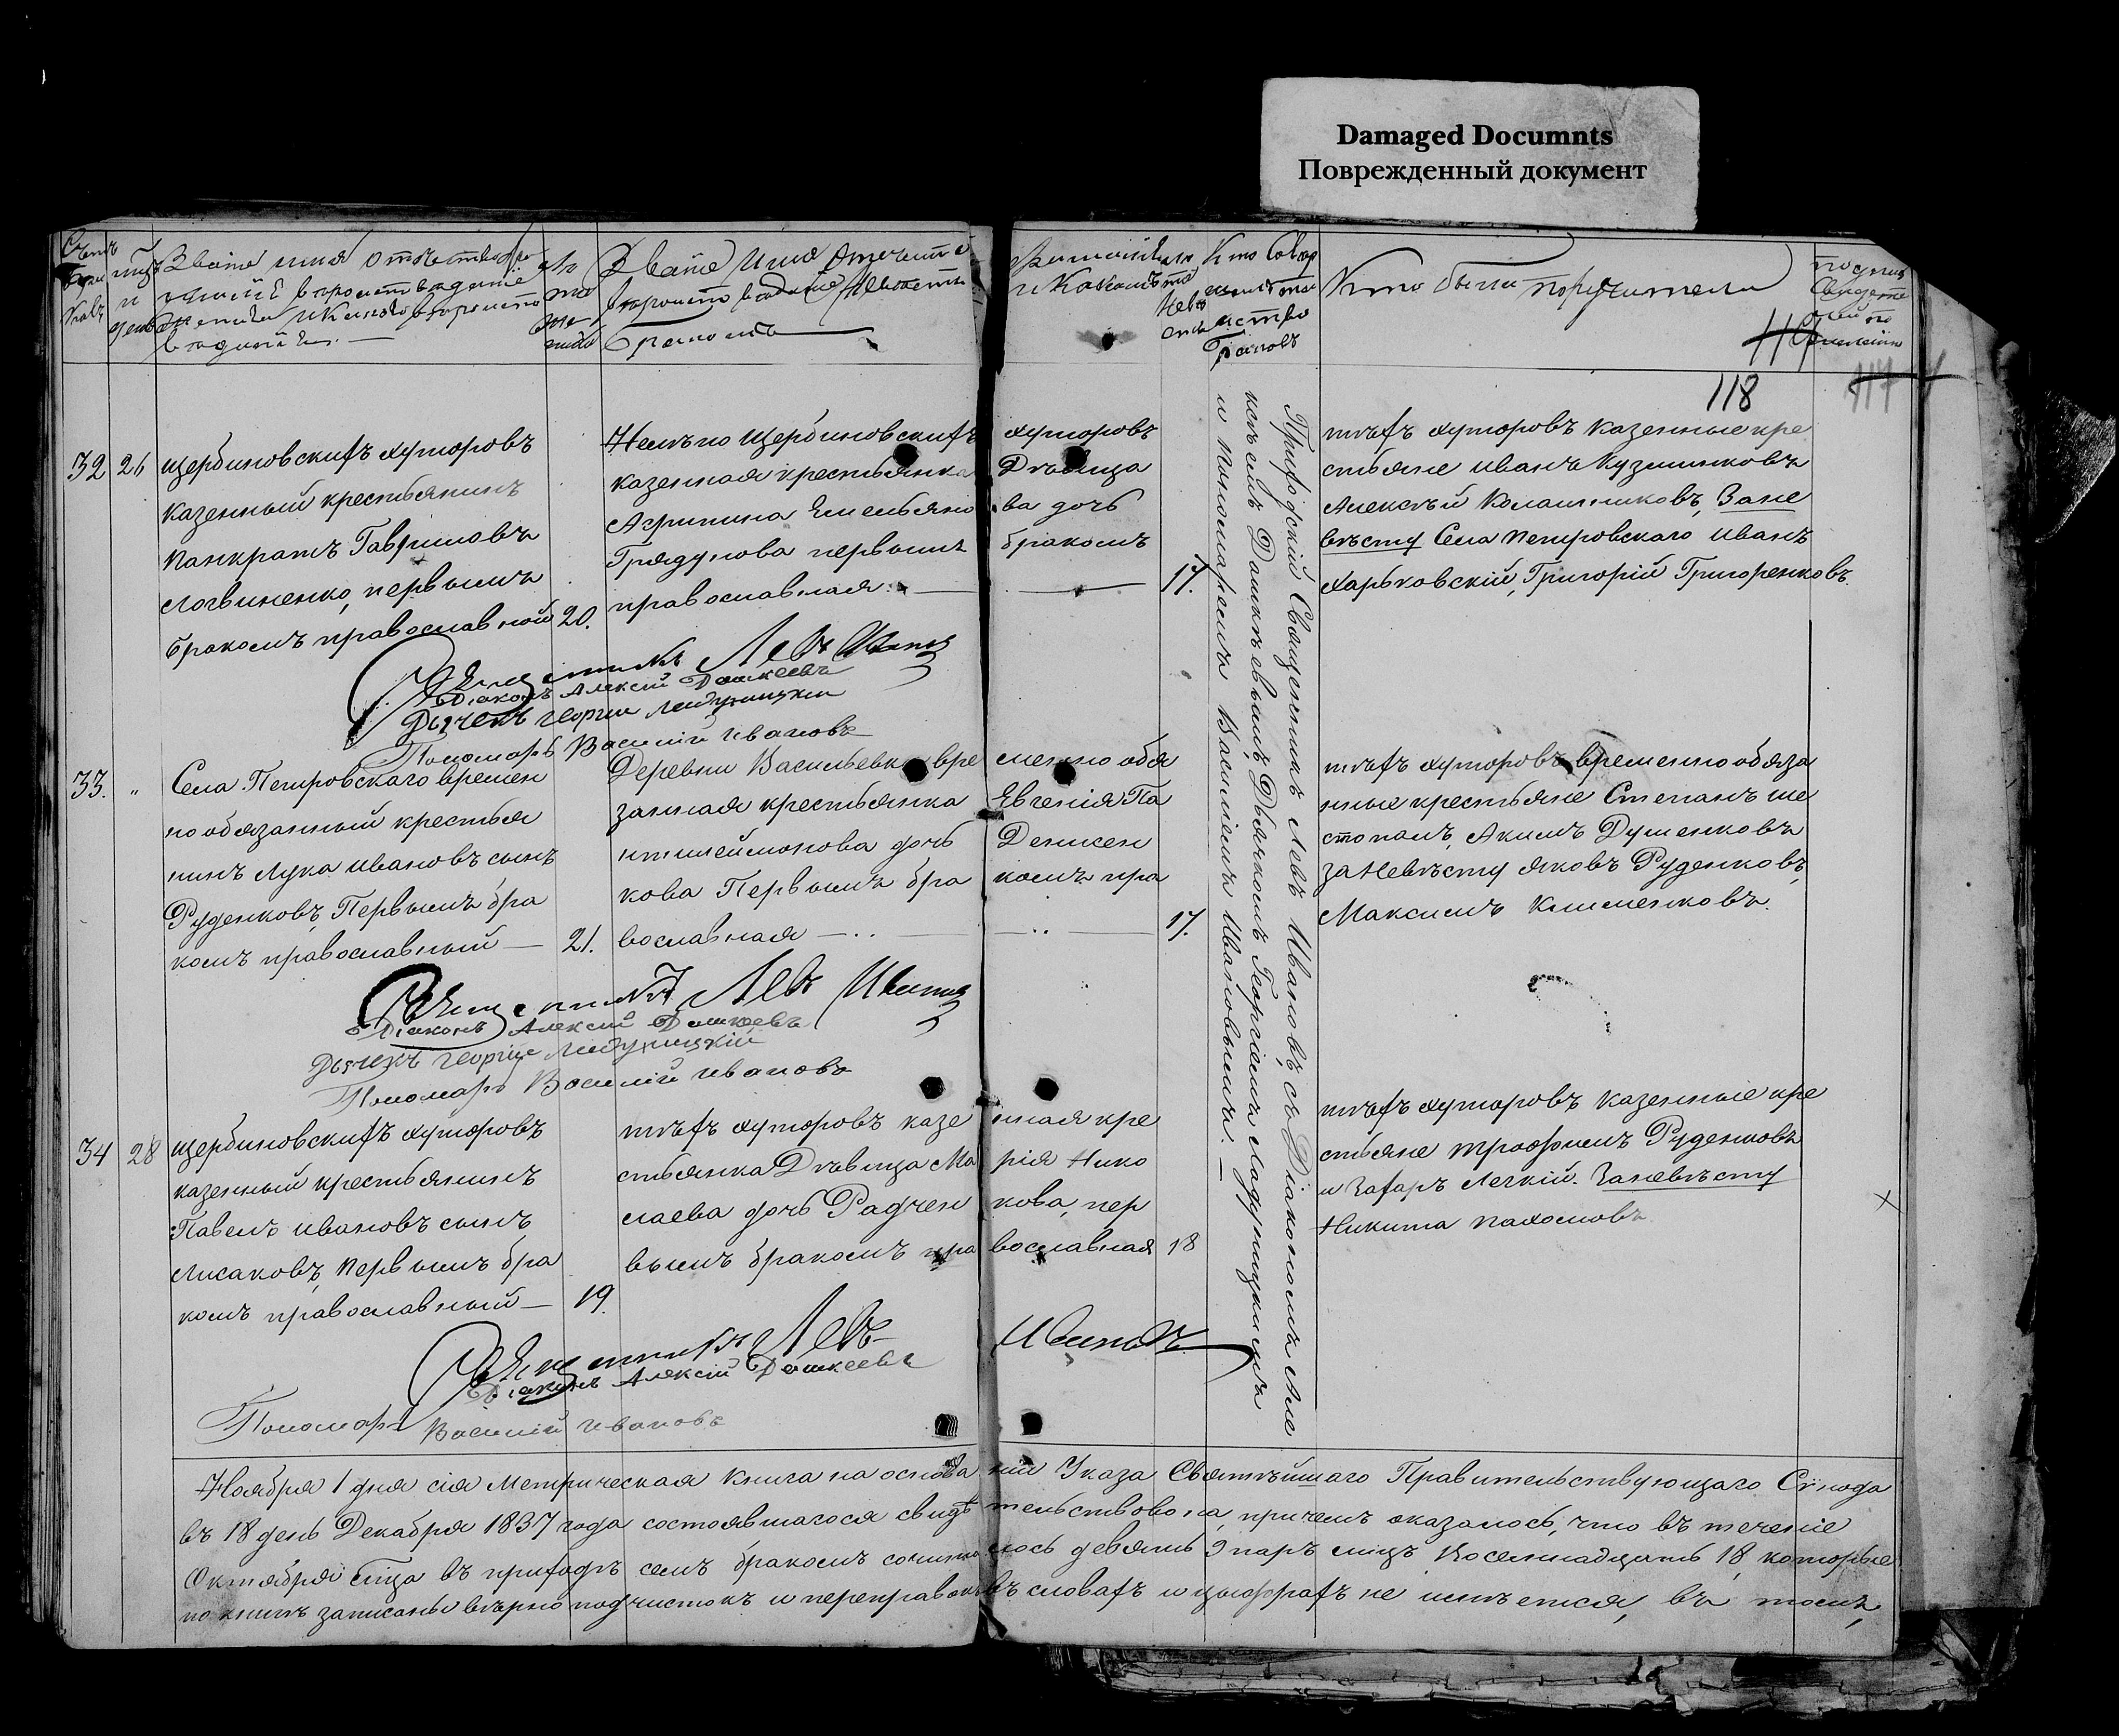 Damaged Documnts
Поврежденный документ
Счетъ браковъ
мцъ и день
Званіе имя отчество
жениха и которымъ
лѣта жениха
Званіе Имя Отчество
Бракомъ
и Какимъ
лѣта Невѣсты
Кто совер
таинство
Браковъ
Кто были поручители
119
118
117
32
26
Щербиновскихъ хуторовъ
казенный крестьянинъ
Панкратъ Гавриловъ
Логвиненко, первымъ
бракомъ православный
20.
Тѣхъ же Щербиновскихъ хуторовъ
казенная крестьянка Дѣвица
Агрипина Емельяно ва дочь
Грядунова первымъ бракомъ
православная.
17.
Приходскій Священникъ Левъ Ивановъ, съ Діакономъ Але
ксѣемъ Дашкѣевымъ, Дьячкомъ Георгіемъ Ладухицкимъ
и Пономаремъ Василіемъ Ивановымъ.
тѣхъ хуторовъ казенные кре
стьяне Иванъ Кузминковъ
Алексѣй Колашниковъ, Зане
вѣсту Села Петровскаго Иванъ
Харьковскій, Григорій Григоренковъ.
Священникъ Левъ Ивановъ
Діаконъ Алексій Дашкеевъ
Дьячекъ Георгій Ладухицкій
Пономарь Василій Ивановъ
33.
"
Села Петровскаго времен
но обязанный крестья
нинъ Лука Ивановъ сынъ
Руденковъ, Первымъ бра
комъ православный —
21.
Деревни Васильевки вре менно обя
занная крестьянка Евгенія Па
нтилеймонова дочь Денисен
кова Первымъ бра комъ пра
вославная
17.
тѣхъ хуторовъ временно обяза
нные крестьяне Степанъ Ше
стопалъ, Акимъ Душенковъ
за Невѣсту Яковъ Руденковъ,
Максимъ Клименковъ.
Священникъ Левъ Ивановъ
Діаконъ Алексій Дашкеевъ
Дьячекъ Георгій Ладухицкій
Пономарь Василій Ивановъ
34
28
Щербиновскихъ хуторовъ
казенный крестьянинъ
Павелъ Ивановъ сынъ
Лисаковъ, Первымъ бра
комъ православный —
19.
тѣхъ хуторовъ казе нная кре
стьянка Дѣвица Ма рія Нико
лаева дочь Радчен кова, пер
вымъ бракомъ пра вославная
18
тѣхъ хуторовъ казенные кре
стьяне Трофимъ Руденковъ
и Захаръ Легкій. Заневѣсту
Никита Пахомовъ
Священникъ Левъ Ивановъ
Діаконъ Алексій Дашкеевъ
Пономарь Василій Ивановъ
Ноября 1 дня сія Метрическая книга на основа ніи Указа Святѣйшаго Правительствующаго Сѵнода
въ 18 день Декабря 1837 года состоявшагося свидѣ тельствована, причемъ оказалось, что въ теченіе
Октября мца въ приходѣ семъ бракомъ сочита лось девять 9 паръ лицъ Восемнадцать 18, которые
по книгѣ записаны вѣрно подчистокъ и переправокъ въ словахъ и цыфрахъ не имѣется, въ томъ,